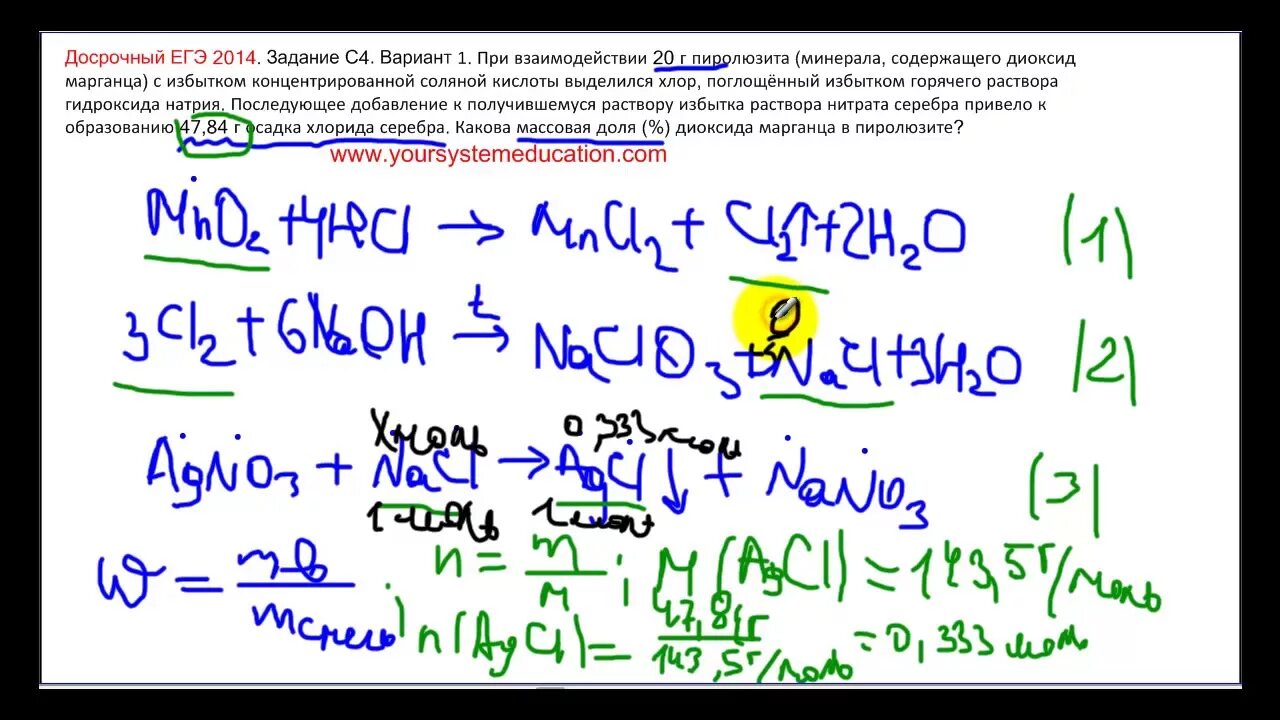 Досрочный ЕГЭ 2014. Задание С4. Вариант 1. При взаимодействии 20 г пиролюзита (минерала, содержащего диоксид
марганца) с избытком концентрированной соляной кислоты выделился хлор, поглощённый избытком горячего раствора
гидроксида натрия. Последующее добавление к получившемуся раствору избытка раствора нитрата серебра привело к
образованию 47,84 г осадка хлорида серебра. Какова массовая доля (%) диоксида марганца в пиролюзите?
www.yoursystemeducation.com
MnO2 + 4HCl → MnCl2 + Cl2↑ + 2H2O (1)
3Cl2 + 6NaOH t → NaClO3 + 5NaCl + 3H2O (2)
X моль 0,333 моль
AgNO3 + NaCl → AgCl↓ + NaNO3 (3)
1 моль 1 моль
W = m в / m смесь ; n = m / M ; M(AgCl) = 143,5 г/моль
n(AgCl) = 47,84 г / 143,5 г/моль = 0,333 моль